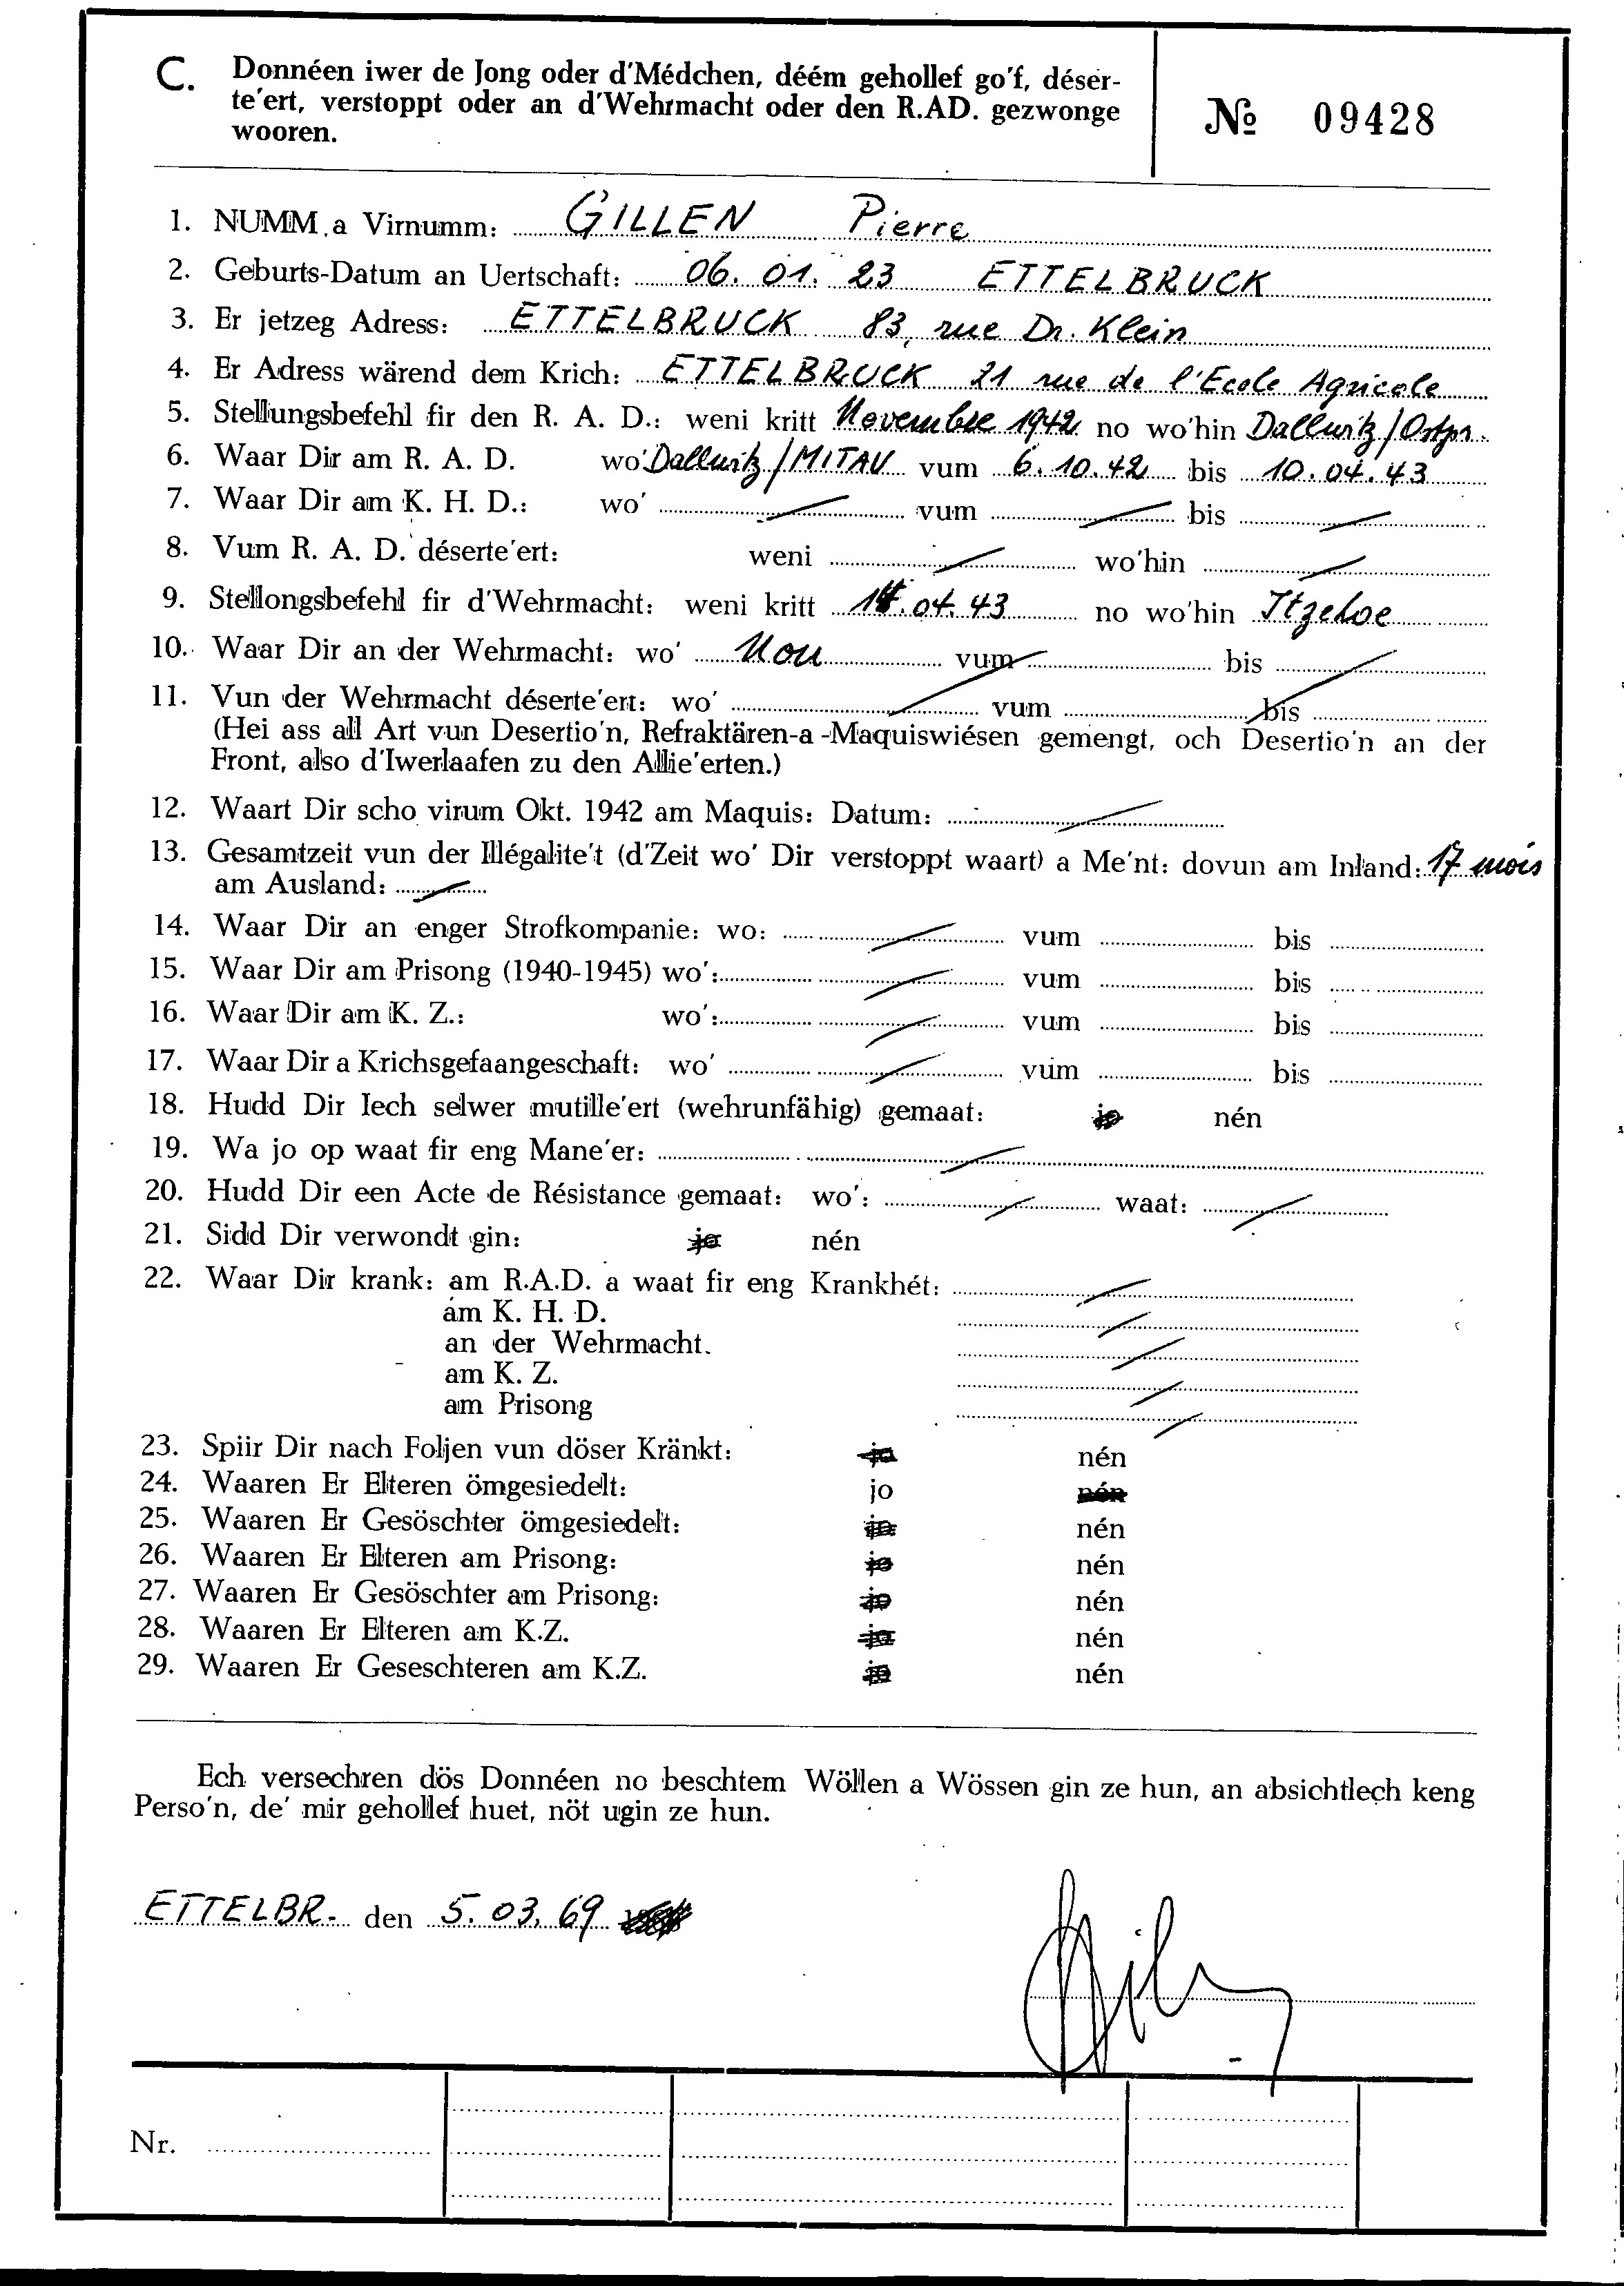 C. Donnéen iwer de Jong oder d'Médchen, déém gehollef go'f, déser-
te'ert, verstoppt oder an d'Wehrmacht oder den R.AD. gezwonge
wooren.
№ 09428
1. NUMM.a Virnumm: GILLEN Pierre
2. Geburts-Datum an Uertschaft: 06. 01. 23 ETTELBRUCK
3. Er jetzeg Adress: ETTELBRUCK 83, rue Dr. Klein
4. Er Adress wärend dem Krich: ETTELBRUCK 21 rue de l'Ecole Agricole
5. Stellungsbefehl fir den R. A. D.: weni kritt Novembre 1942 no wo'hin Dallwitz/Ostpr.
6. Waar Dir am R. A. D. wo' Dallwitz/MITAU vum 6.10.42 bis 10.04.43
7. Waar Dir am K. H. D.: wo' vum bis
8. Vum R. A. D. déserte'ert: weni wo'hin
9. Stellongsbefehl fir d'Wehrmacht: weni kritt .04.43 no wo'hin Itzehoe
10. Waar Dir an der Wehrmacht: wo' Non vum bis
11. Vun der Wehrmacht déserte'ert: wo' vum bis
(Hei ass all Art vun Desertio'n, Refraktären-a-Maquiswiésen gemengt, och Desertio'n an der
Front, also d'Iwerlaafen zu den Allie'erten.)
12. Waart Dir scho virum Okt. 1942 am Maquis: Datum:
13. Gesamtzeit vun der Illégalite't (d'Zeit wo' Dir verstoppt waart) a Me'nt: dovun am Inland: 17 mois
am Ausland:
14. Waar Dir an enger Strofkompanie: wo: vum bis
15. Waar Dir am Prisong (1940-1945) wo': vum bis
16. Waar Dir am K. Z.: wo': vum bis
17. Waar Dir a Krichsgefaangeschaft: wo' vum bis
18. Hudd Dir Iech selwer mutille'ert (wehrunfähig) gemaat: jo nén
19. Wa jo op waat fir eng Mane'er:
20. Hudd Dir een Acte de Résistance gemaat: wo': waat:
21. Sidd Dir verwondt gin: jo nén
22. Waar Dir krank: am R.A.D. a waat fir eng Krankhét:
am K. H. D.
an der Wehrmacht.
am K. Z.
am Prisong
23. Spiir Dir nach Foljen vun döser Kränkt: jo nén
24. Waaren Er Elteren ömgesiedelt: jo nén
25. Waaren Er Gesöschter ömgesiedelt: jo nén
26. Waaren Er Elteren am Prisong: jo nén
27. Waaren Er Gesöschter am Prisong: jo nén
28. Waaren Er Elteren am K.Z. jo nén
29. Waaren Er Geseschteren am K.Z. jo nén
Ech versechren dös Donnéen no beschtem Wöllen a Wössen gin ze hun, an absichtlech keng
Perso'n, de' mir gehollef huet, nöt ugin ze hun.
ETTELBR. den 5. 03. 69
Nr.